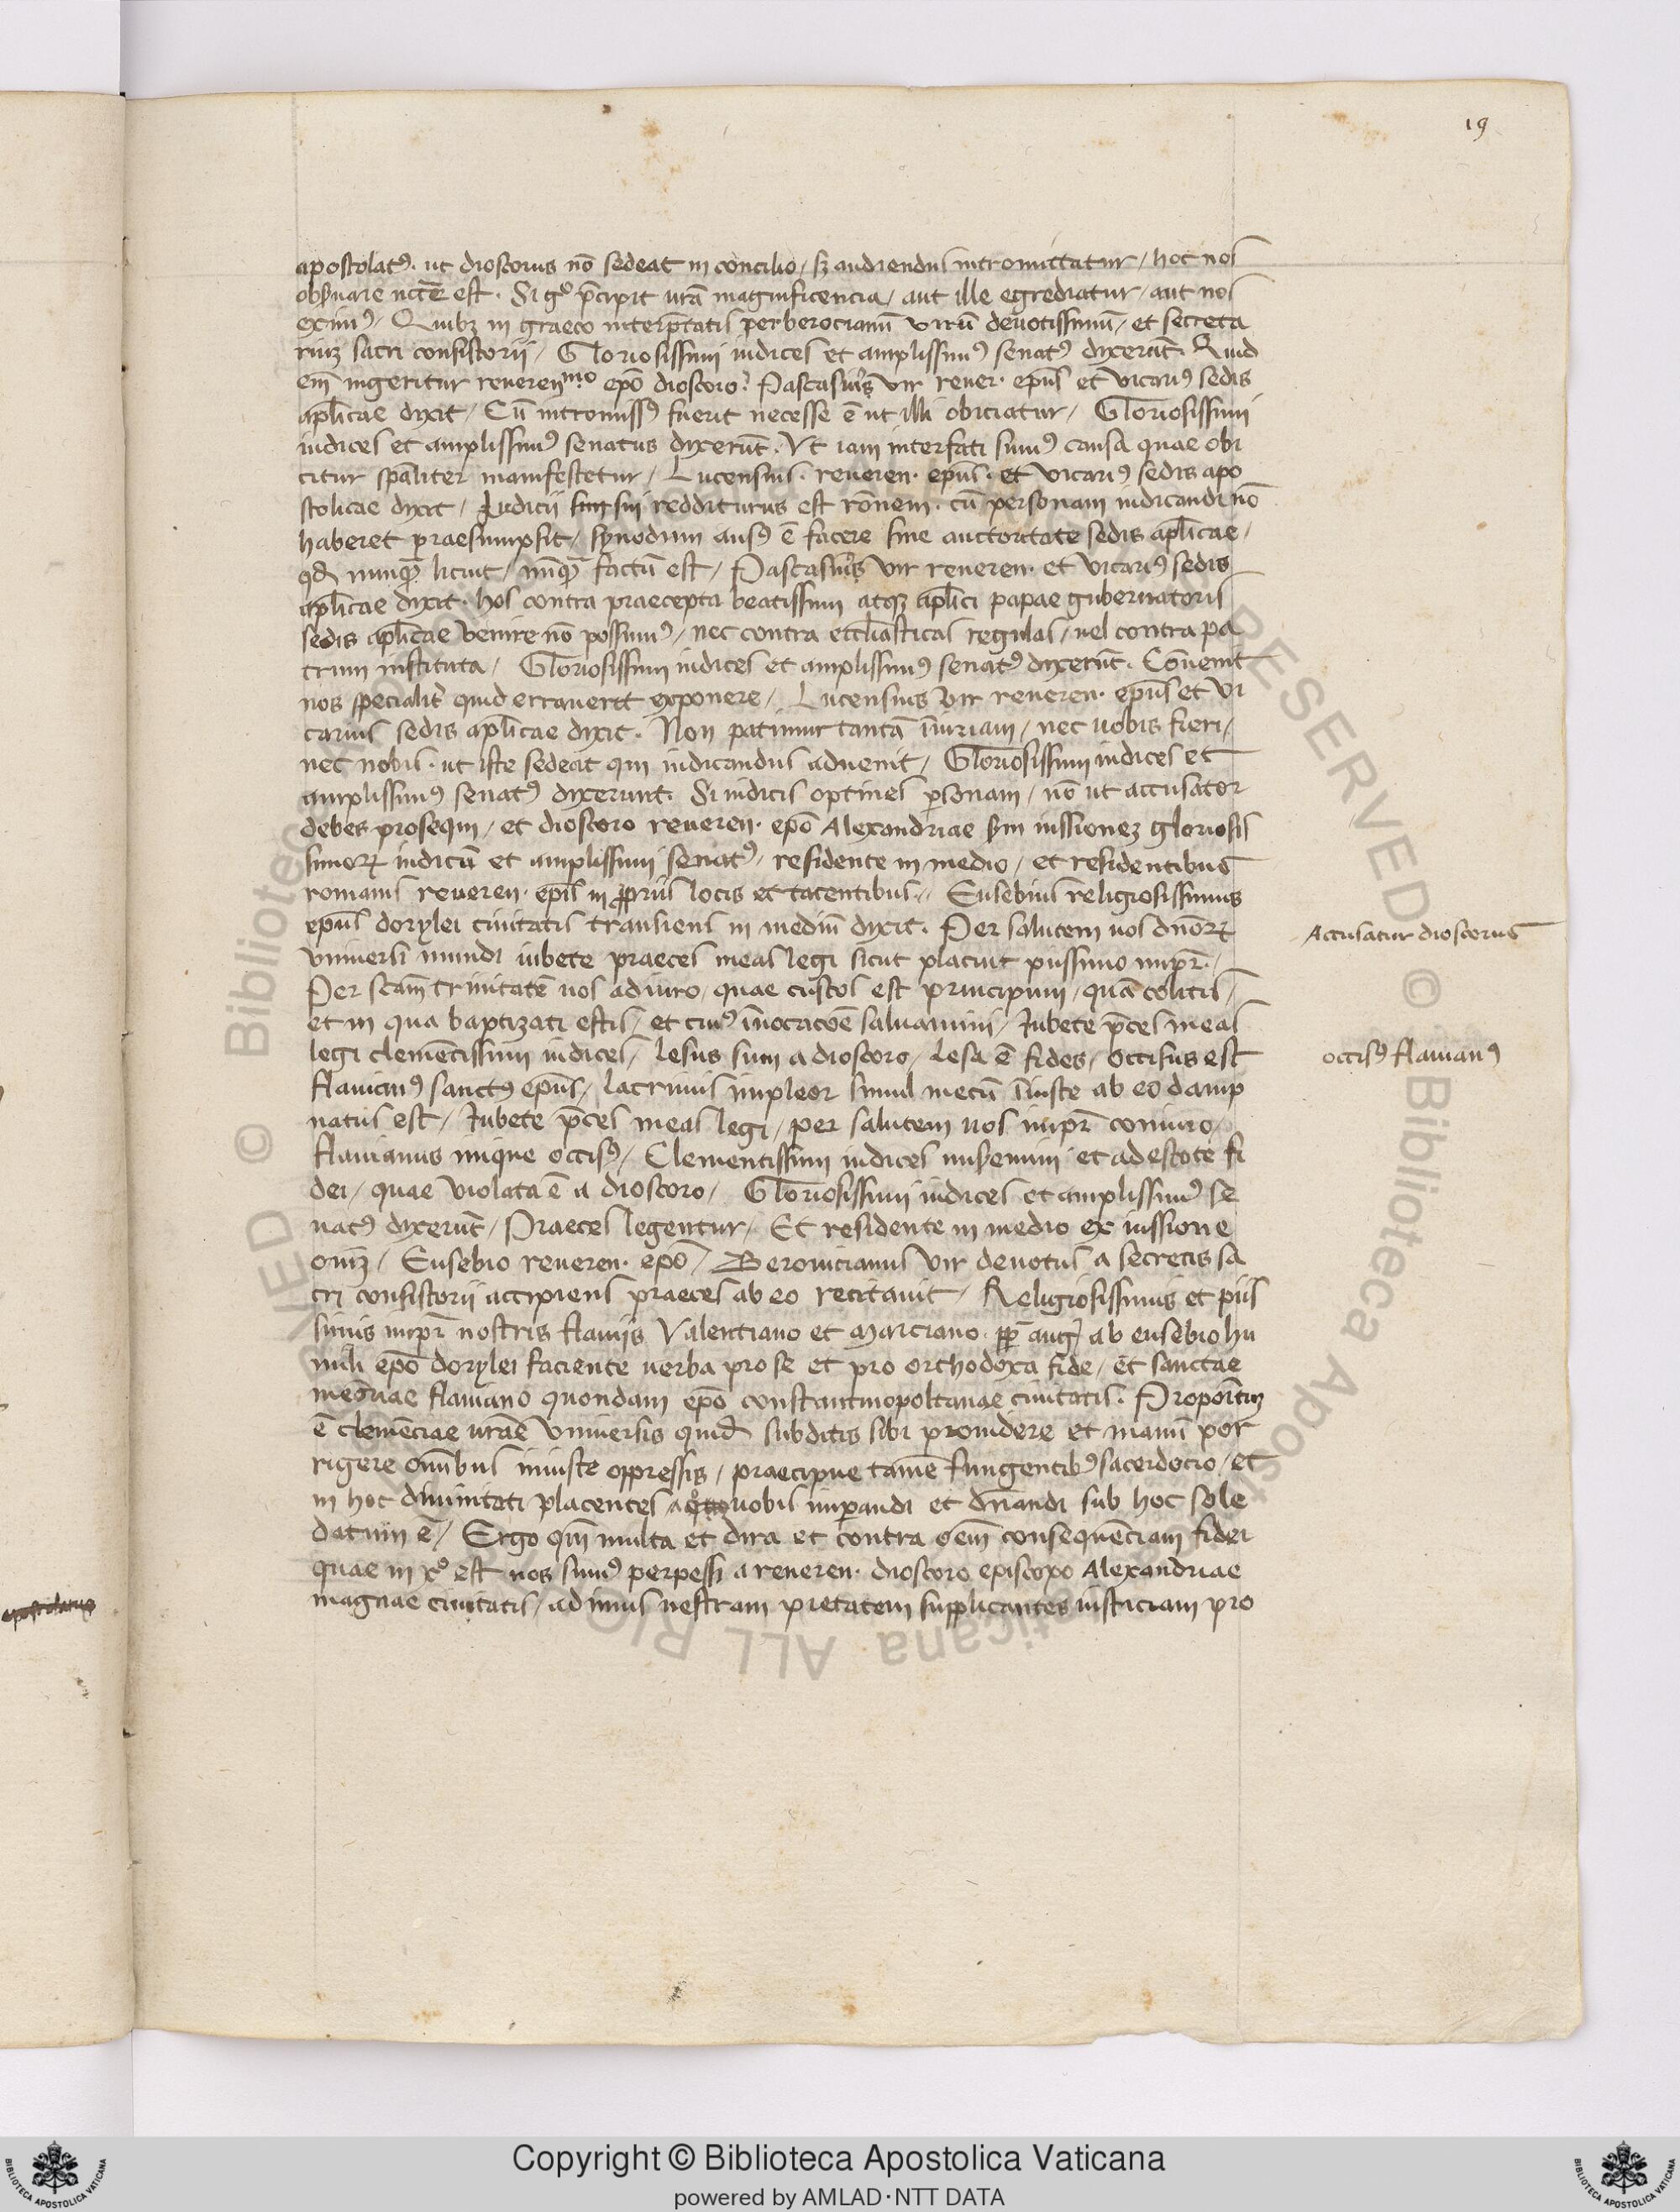 19
apostolatꝰ. ut dioscorus nō sedeat in concilio / sꝫ audiendus intromittatur / hoc nos
obẜuare nccē est. Si gͦ p̄cipit urā magnificencia / aut ille egrediatur / aut nos
eximꝰ / Quibꝫ in graeco interp̄tatis per berocianū virū deuotissimū / et secreta
riuꝫ sacri consistorii / Gloriosissimi iudices et amplissimꝰ senatꝰ dixerūt. Quid
em̄ ingeritur reuerenᵐᵒ epō dioscoro? Pascasius vir reuer. ep̄us et vicariꝰ sedis
ap̄licae dixit / Cū intromissꝰ fuerit necesse ē ut illi obiciatur / Gloriosissimi
iudices et amplissimꝰ senatus dixerūt. Vt iam interfati sumꝰ causa quae obi
citur sp̄aliter manifestetur / Lucensius. reueren. ep̄us. et vicariꝰ sedis apo
stolicae dixit / Iudicii sui redditurus est rōnem. cū personam iudicandi nō
haberet praesumpsit / synodum ausꝰ ē facere sine auctoritate sedis ap̄licae /
qd̄ nunqꝫ licuit / nūqꝫ factū est / Pascasius vir reueren. et vicariꝰ sedis
ap̄licae dixit. hos contra praecepta beatissimi atqꝫ ap̄lici papae gubernatoris
sedis ap̄licae venire nō possumꝰ / nec contra eccl̄iasticas regulas / uel contra pa
trum instituta / Gloriosissimi iudices et amplissimꝰ senatꝰ dixerūt. Cōuenit
nos specialit̄ quid errauerit exponere / Lucensius vir reueren. ep̄us et vi
carius sedis ap̄licae dixit. Non patimur tantā iniuriam / nec uobis fieri /
nec nobis. ut iste sedeat qui iudicandus aduenit / Gloriosissimi iudices et
amplissimꝰ senatꝰ dixerunt. Si iudicis optines ꝑsonam / nō ut accusator
debes prosequi / et dioscoro reueren. epō Alexandriae sm̄ iussioneꝫ gloriosis
simoꝝ iudicū et amplissimi senatꝰ / residente in medio / et residentibus
romanis reueren. ep̄is in ꝓpriis locis et tacentibus / Eusebius religiosissimus
ep̄us dorylei ciuitatis transiens in mediū dixit. Per salutem uos dn̄oꝝ
vniuersi mundi iubete praeces meas legi sicut placuit piissimo imp̄r. /
Per scām trinitatē uos adiuro / quae custos est principum / quā colitis /
et in qua baptizati estis / et cuiꝰ īuocacōe saluamini / Iubete p̄ces meas
legi clemētissimi iudices / lesus sum a dioscoro / lesa ē fides / occisus est
flauianꝰ sanctꝰ ep̄us / lacrimis impleor simul mecū iniuste ab eo damp
natus est / Iubete p̄ces meas legi / per salutem uos imp̄r coniuro /
flauianus inique occisꝰ / Clementissimi iudices miseremini et adestote fi
dei / quae violata ē a dioscoro / Gloriosissimi iudices et amplissimꝰ se
natꝰ dixerūt / Praeces legentur / Et residente in medio ex iussione
om̄iꝫ / Eusebio reueren. epō / Beronicianus vir deuotus a secretis sa
cri consistorii accipiens praeces ab eo recitauit / Religiosissimis et piis
simis imp̄r nostris flauijs Valentiano et Marciano. ꝑp̄ auḡ ab eusebio hu
mili epō dorylei faciente uerba pro se et pro orthodoxa fide / et sanctae
meōriae flauiano quondam epō constantinopoltanae ciuitatis. Proposituꝫ
ē clemēciae urāe vniuersis quid̄ subditis sibi prouidere et manū por
rigere om̄ibus iniuste oppressis / praecipue tamē fungentibꝰ sacerdocio / et
in hoc diuinitati placentes a quo uobis impandi et dn̄andi sub hoc sole
datum ē / Ergo qm̄ multa et dira et contra oēm consequēciam fidei
quae in xͦ est nos sumꝰ perpessi a reueren. dioscoro episcopo Alexandriae
magnae ciuitatis / adimus uestram pietatem supplicantes iusticiam pro
Accusatur dioscorus
occisꝰ flauianꝰ
apostolatus
Copyright © Biblioteca Apostolica Vaticana
powered by AMLAD·NTT DATA
BIBLIOTECA APOSTOLICA VATICANA
BIBLIOTECA APOSTOLICA VATICANA
© Biblioteca Apostolica Vaticana ALL RIGHTS RESERVED